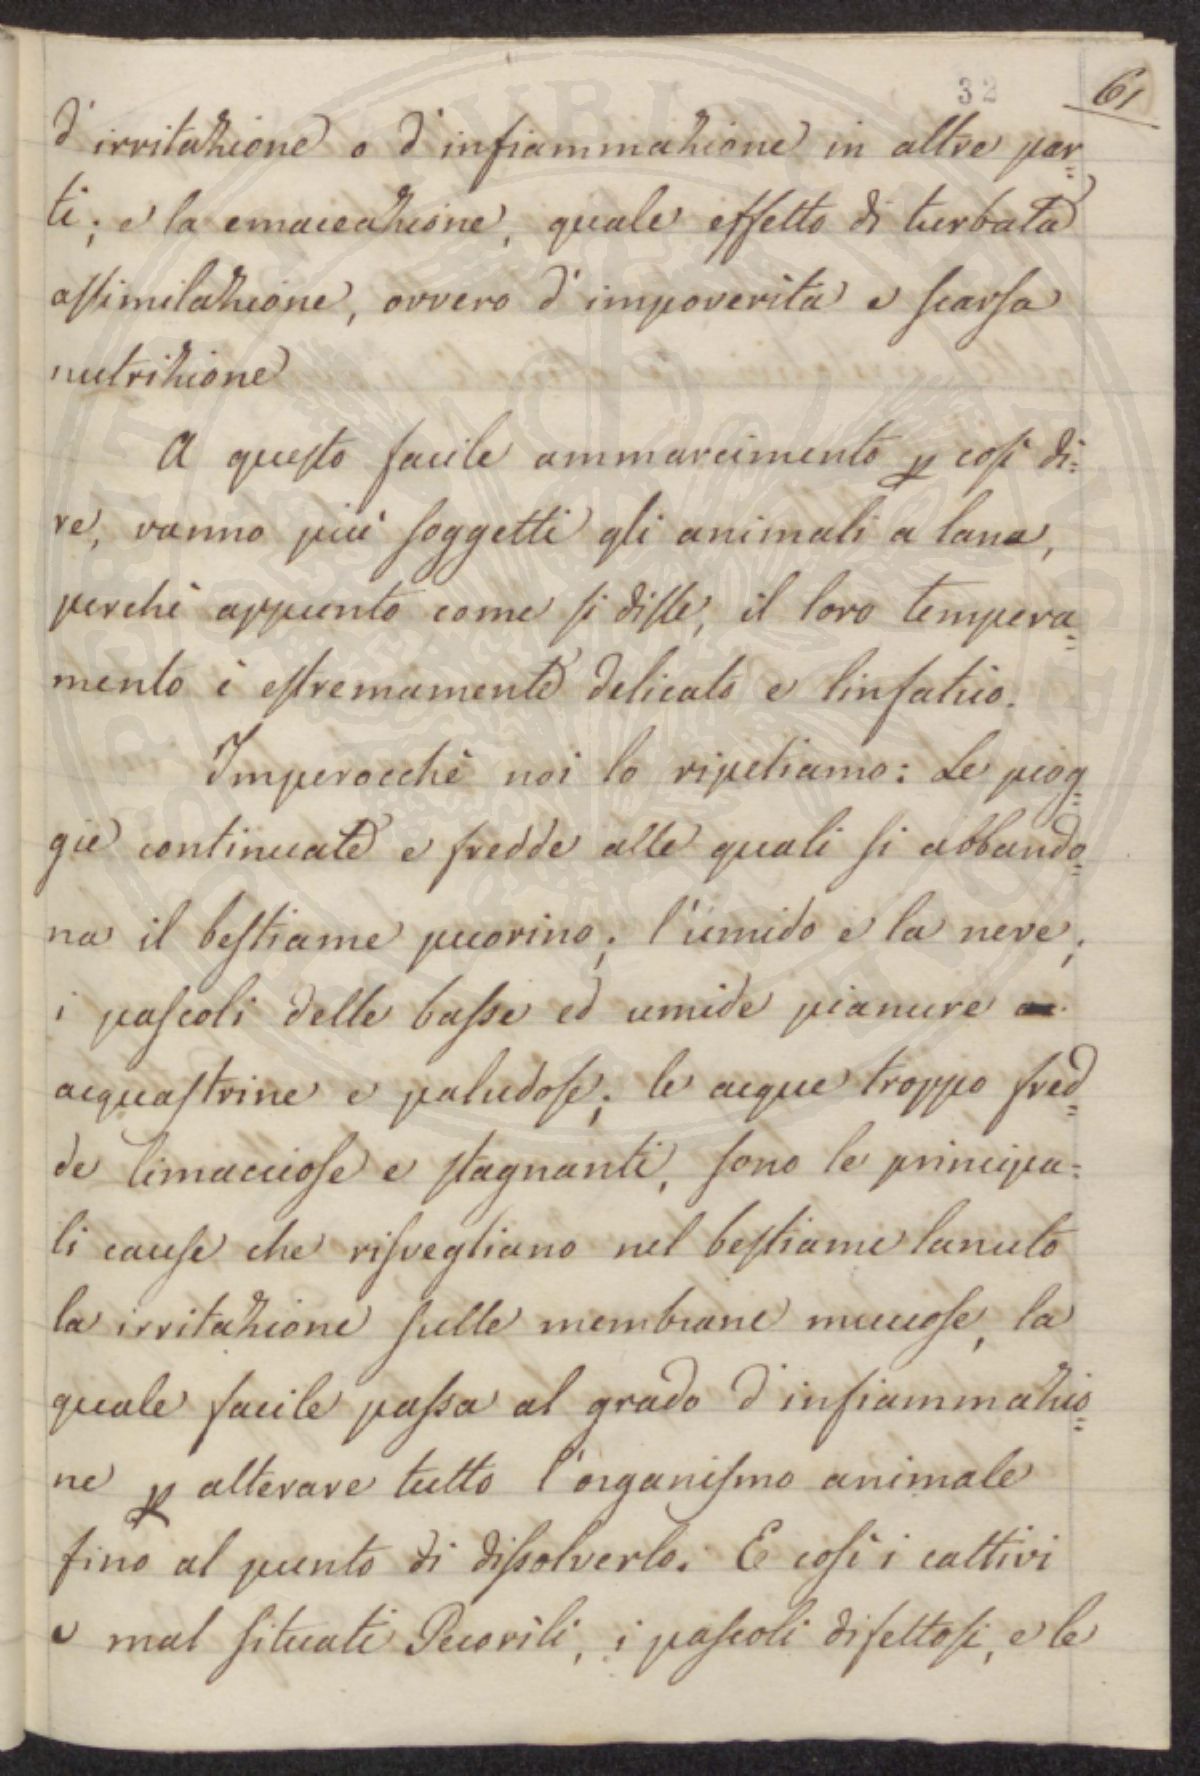 32 61
d'irritazione o d'infiammazione in altre par=
ti; e la emaceazione, quale effetto di turbata
assimilazione, ovvero d'impoverita e scarsa
nutrizione
A questo facile ammarcimento p così di=
re, vanno più soggetti gli animali a lana,
perchè appunto come si disse, il loro tempera=
mento è estremamente delicato e linfatico.
Imperocchè noi lo ripetiamo: Le piog=
gie continuate e fredde alle quali si abbando=
na il bestiame pecorino; l'umido e la neve;
i pascoli delle basse ed umide pianure
acquastrine e paludose; le acque troppo fred=
de limacciose e stagnanti, sono le principa=
li cause che risvegliano nel bestiame lanuto
la irritazione sulle membrane mucose, la
quale facile passa al grado d'infiammazio=
ne p alterare tutto l'organismo animale
fino al punto di dissolverlo. E così i cattivi
e mal situati Pecorili, i pascoli difettosi, e le